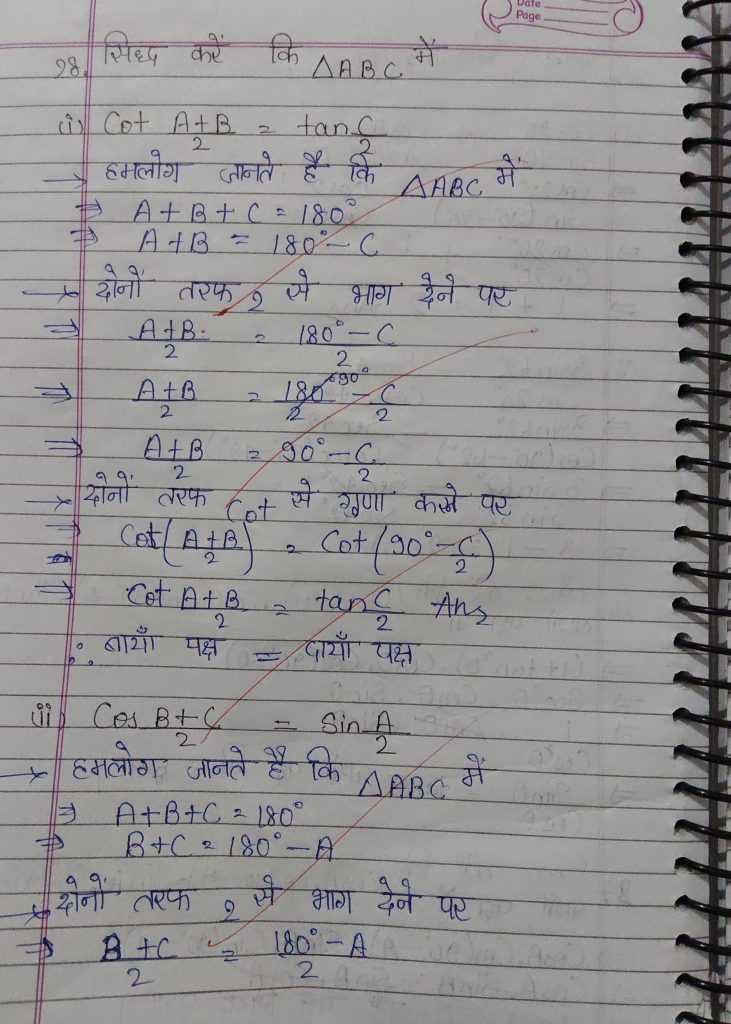 Date
Page
28. सिध्द करें कि △ABC में
(i) Cot A+B/2 = tan C/2
→ हमलोग जानते है कि △ABC में
⇒ A+B+C = 180°
⇒ A+B = 180° - C
→ दोनों तरफ 2 से भाग देने पर
⇒ A+B/2 = 180° - C/2
⇒ A+B/2 = 180°/2 90° - C/2
⇒ A+B/2 = 90° - C/2
→ दोनों तरफ Cot से गुणा करने पर
⇒ Cot (A+B/2) = Cot (90° - C/2)
⇒ Cot A+B/2 = tan C/2 Ans
∴ बायाँ पक्ष = दायाँ पक्ष
(ii) Cos B+C/2 = Sin A/2
→ हमलोग जानते है कि △ABC में
⇒ A+B+C = 180°
⇒ B+C = 180° - A
→ दोनों तरफ 2 से भाग देने पर
⇒ B+C/2 = 180° - A/2